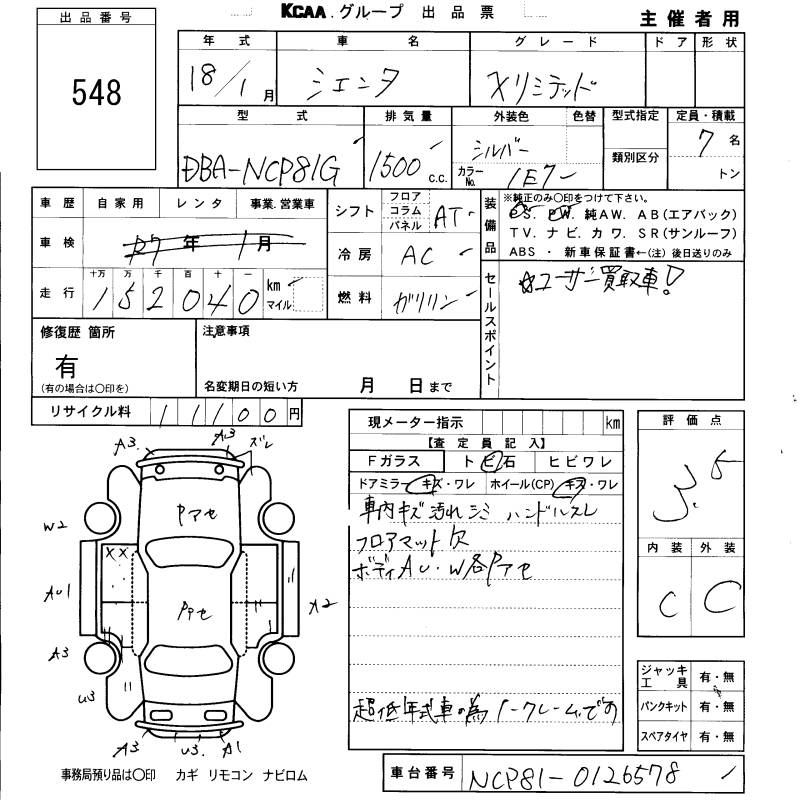 KCAA グループ 出品票
主催者用
出品番号
548
年式 車名 グレード ドア 形状
18/1月 シエンタ Xリミテッド
型式 排気量 外装色 色替 型式指定 定員・積載
DBA-NCP81G 1500 c.c. シルバー カラーNo. 1E7 類別区分 7名
トン
車歴 自家用 レンタ 事業.営業車
シフト フロア コラム パネル AT
装備品 ※純正のみ〇印をつけて下さい。
PS. PW. 純AW. AB(エアバッグ)
TV. ナビ. カワ. SR(サンルーフ)
ABS ・ 新車保証書←(注)後日送りのみ
車検 年 1月
冷房 AC
走行 十万 万 千 百 十 一
152040 km マイル
燃料 ガソリン
セールスポイント ☆ユーザー買取車!
修復歴 箇所
有
(有の場合は〇印を)
注意事項
名変期日の短い方 月 日まで
リサイクル料 11100円
現メーター指示 km
【査定員記入】
Fガラス トビ石 ヒビワレ
ドアミラー キズ・ワレ ホイール(CP) キズ・ワレ
車内キズ汚れシミ ハンドルスレ
フロアマット欠
ボディAU・W各Pアセ
超低年式車の為ノークレームです
評価点
3.5
内装 外装
C C
ジャッキ工具 有・無
パンクキット 有・無
スペアタイヤ 有・無
A3 A3 ズレ
Pアセ
W2
XX
AU1
PアセA2
A3
U3
A3 U3 A1
事務局預り品は〇印 カギ リモコン ナビロム
車台番号 NCP81-0126578